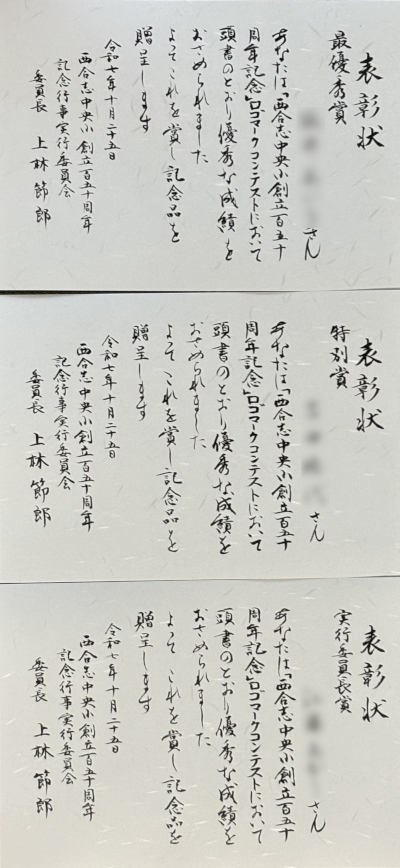 表彰状
最優秀賞
さん
あなたは「西合志中央小創立百五十
周年記念」ロゴマークコンテストにおいて
頭書のとおり優秀な成績を
おさめられました
よってこれを賞し記念品を
贈呈します
令和七年十月二十五日
西合志中央小創立百五十周年
記念行事実行委員会
委員長 上林節郎
表彰状
特別賞
さん
あなたは「西合志中央小創立百五十
周年記念」ロゴマークコンテストにおいて
頭書のとおり優秀な成績を
おさめられました
よってこれを賞し記念品を
贈呈します
令和七年十月二十五日
西合志中央小創立百五十周年
記念行事実行委員会
委員長 上林節郎
表彰状
実行委員長賞
さん
あなたは「西合志中央小創立百五十
周年記念」ロゴマークコンテストにおいて
頭書のとおり優秀な成績を
おさめられました
よってこれを賞し記念品を
贈呈します
令和七年十月二十五日
西合志中央小創立百五十周年
記念行事実行委員会
委員長 上林節郎